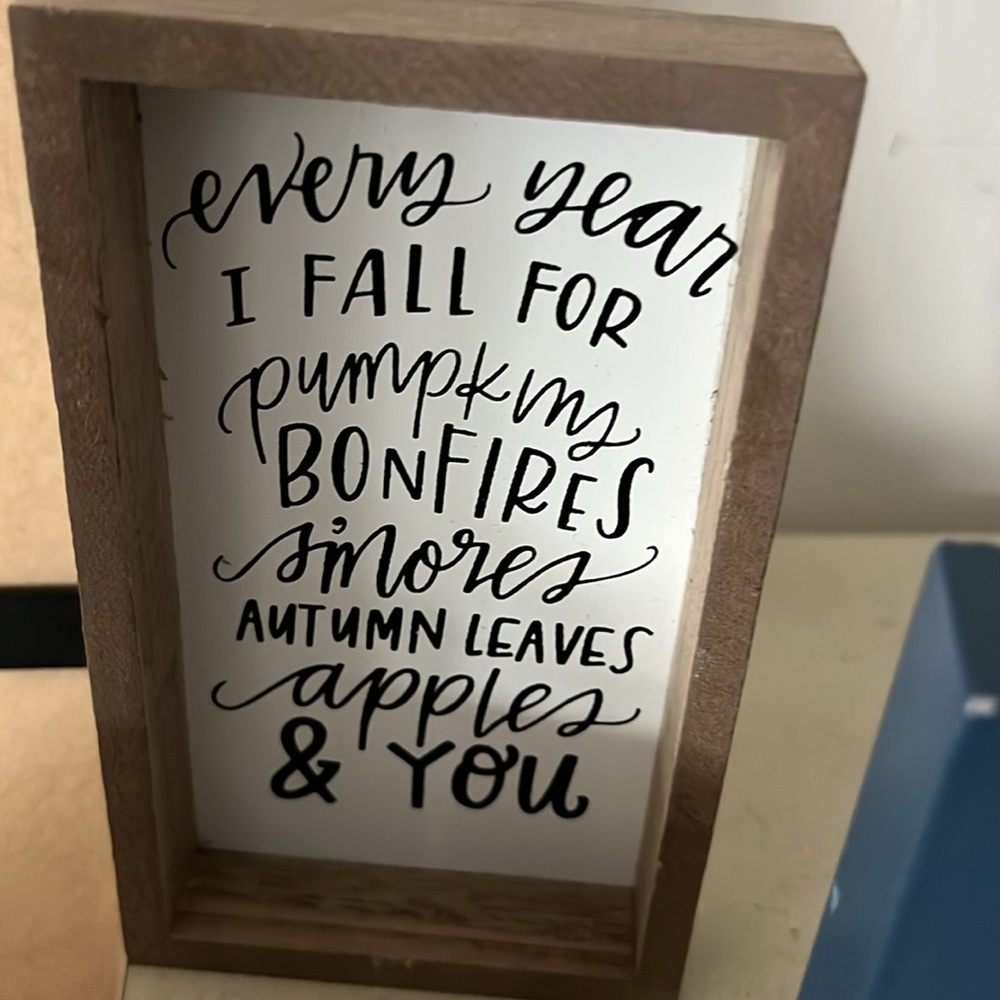 every year
I FALL FOR
pumpkins
BONFIRES
s'mores
AUTUMN LEAVES
apples
& YOU